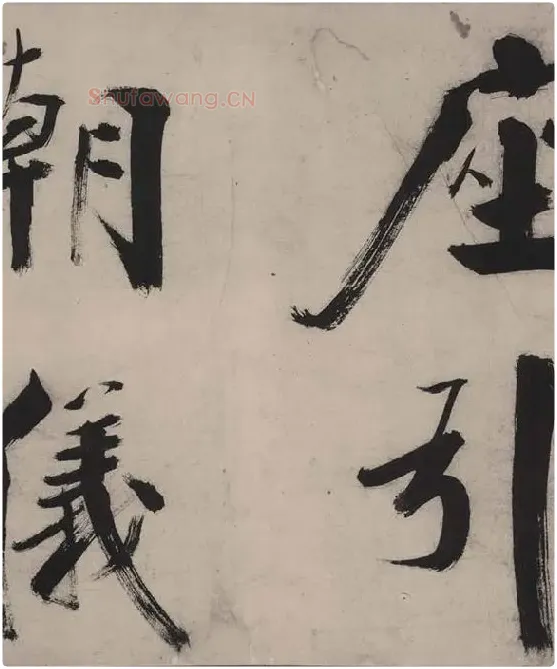 座引
朝儀
Shufawang.CN